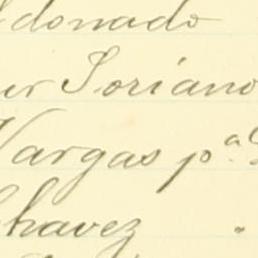 ldonado
ur Soriano
Vargas pª
Chavez